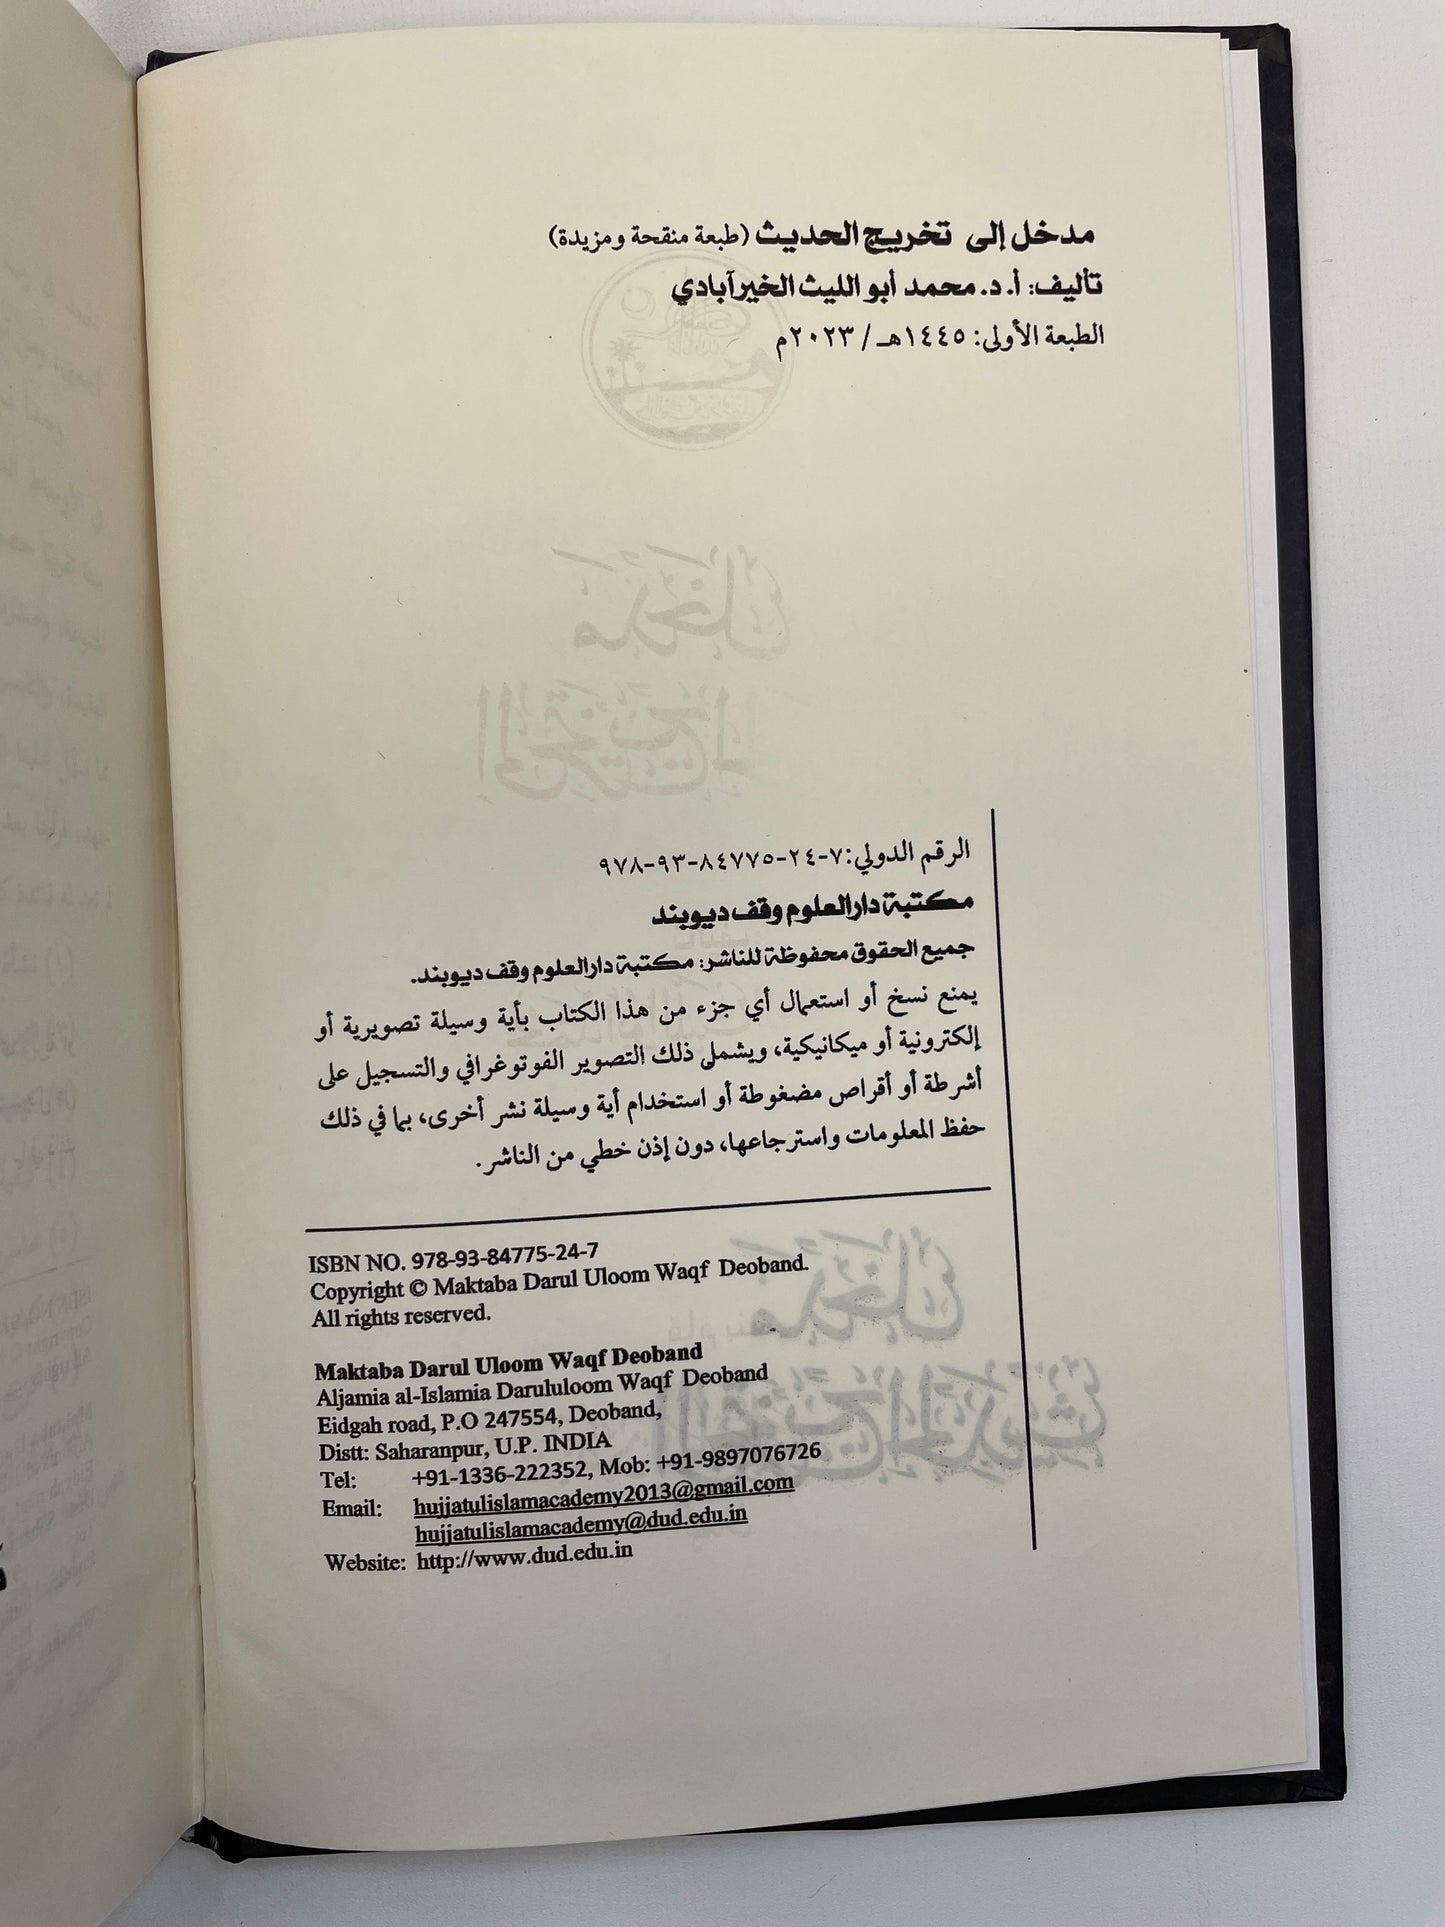 مدخل إلى تخريج الحديث (طبعة منقحة ومزيدة)
تأليف: أ. د. محمد أبو الليث الخيرآبادي
الطبعة الأولى: ١٤٤٥هـ / ٢٠٢٣م
الرقم الدولي: ٧-٢٤-٨٤٧٧٥-٩٣-٩٧٨
مكتبة دارالعلوم وقف ديوبند
جميع الحقوق محفوظة للناشر: مكتبة دارالعلوم وقف ديوبند.
يمنع نسخ أو استعمال أي جزء من هذا الكتاب بأية وسيلة تصويرية أو
إلكترونية أو ميكانيكية، ويشمل ذلك التصوير الفوتوغرافي والتسجيل على
أشرطة أو أقراص مضغوطة أو استخدام أية وسيلة نشر أخرى، بما في ذلك
حفظ المعلومات واسترجاعها، دون إذن خطي من الناشر.
ISBN NO. 978-93-84775-24-7
Copyright © Maktaba Darul Uloom Waqf Deoband.
All rights reserved.
Maktaba Darul Uloom Waqf Deoband
Aljamia al-Islamia Darululoom Waqf Deoband
Eidgah road, P.O 247554, Deoband,
Distt: Saharanpur, U.P. INDIA
Tel: +91-1336-222352, Mob: +91-9897076726
Email: hujjatulislamacademy2013@gmail.com
hujjatulislamacademy@dud.edu.in
Website: http://www.dud.edu.in